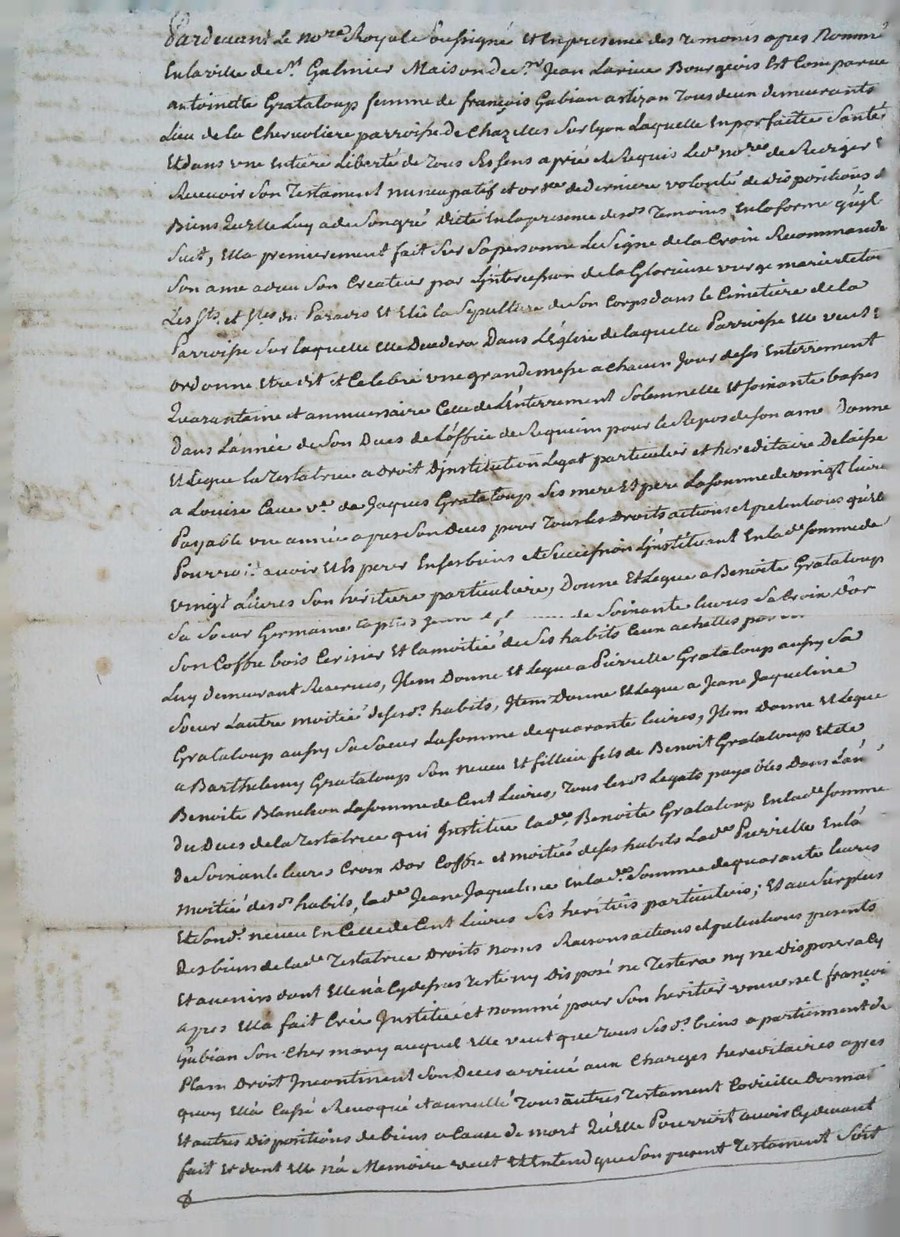 Pardevant Le no.re Royal Soussigné et En presence des Temoins apres Nommé
En la ville de S.t Galmier Maison de S.r Jean Larive Bourgeois Est Comparue
antoinette Grataloup femme de françois Gubian artizan Tous deux demeurants
Lieu de la Chervoliere parroisse de Chazelles Sur Lyon Laquelle En parfaitte Santé
Et dans une Entiére Liberté de Tous Ses Sens a prié et Requis Led. no.re de Rediger E
Recevoir Son Testament nuncupatif et or.re de derniere volonté de Dispositions d
Biens Quelle Luy a de Son gré dicté En la presence desd. Temoins En la forme qu'il
Suit, Ella premierement fait Sur Sa personne Le Signe de la Croix Recommandé
Son ame a dieu Son Createur par L'intercession de la Glorieuse vierge marie et tou
Les S.ts et S.tes du Paradis Et Elû la Sepulture de Son Corps dans le Cimetiére de la
Parroisse Sur laquelle Elle Decedera Dans L'Eglise de laquelle Parroisse Elle veut E
ordonne Etre dit et Celebré une grande messe a chacun Jour de Ses Enterrement
Quarantaine et anniversaire Celle de L'enterrement Solemnelle Et Soixante basses
Dans L'année de Son Decès de L'office de Requiem pour le Repos de Son ame Donne
Et Legue la Testatrice a Droit D'institution Legat particulier et hereditaire Delaisse
a Louise Cave v.e de Jaques Grataloup Ses mere Et pere La Somme de vingt Livre
Payable une année apres Son Decès pour Tous les Droits actions et pretentions qu'elle
Pourroit avoir Et Esperer En Ses biens et Succession L'instituant En lad. Somme de
vingt Livres Son héritiere particuliere, Donne Et Legue a Benoite Grataloup
Sa Soeur Germaine de Soixante livres Sa Croix d'or
Son Coffre bois Cerisier Et la moitié de Ses habits
Luy demeurant Reservés, Item Donne Et Legue a Pierrette Grataloup aussy Sa
Soeur L'autre moitié de Sesd. habits, Item Donne Et Legue a Jeane Jaqueline
Grataloup aussy Sa Soeur La Somme de quarante livres, Item Donne Et Legue
a Barthelemy Grataloup Son neveu Et fillieu fils de Benoit Grataloup Et de
Benoite Blanchon La Somme de Cent Livres, Tous lesd. Legats payables Dans L'an
Du Decès de la Testatrice qui Institue lad. Benoite Grataloup En lad. Somme
De Soixante livres Croix D'or Coffre et moitié de Ses habits Lad. Pierrette En la
moitié desd. habits, lad. Jeane Jaqueline En lad. Somme de quarante livres
Et Sond. neveu En Celle de Cent Livres Ses heritiers particuliers; Et au Surplus
Des biens de lad. Testatrice Droits noms Raisons actions et pretentions presents
Et avenirs dont Elle n'a Cy devant Testé ny Disposé ne Testera ny ne Disposera Cy
apres Ella fait Créé Institué et nommé pour Son heritier universel françoi
Gubian Son Cher mary auquel Elle veut que Tous Sesd. biens apartiennent de
Plein Droit Incontinent Son Decès arrivé aux Charges hereditaires apres
quoy Ella Cassé Revoqué et annullé Tous autres Testament Codicille Donnat
Et autres Dispositions de biens a Cause de mort Qu'Elle Pourroit avoir Cy devant
fait Et dont Elle n'a Memoire veut Et Entend que Son present Testament Soit